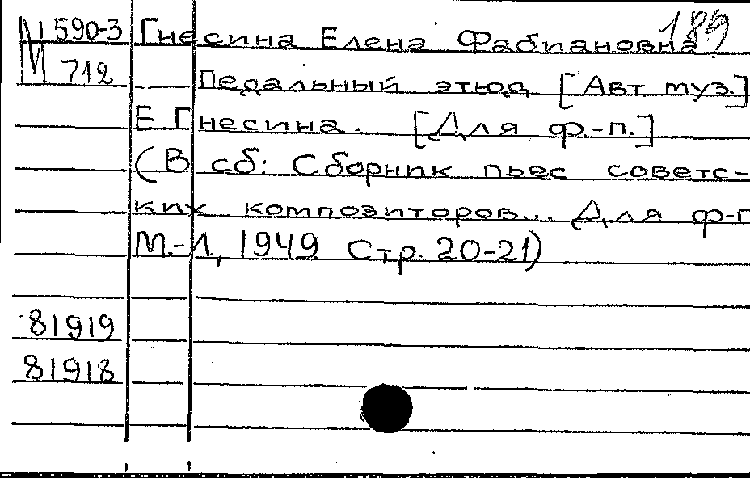 М 590-3 Гнесина Елена Фабиановна 189
М 712 Педальный этюд [Авт муз.]
Е Гнесина. [Для ф.-п.]
(В сб: Сборник пьес советс-
ких композиторов... Для ф-п
М.-Л, 1949 Стр. 20-21)
81919
81918